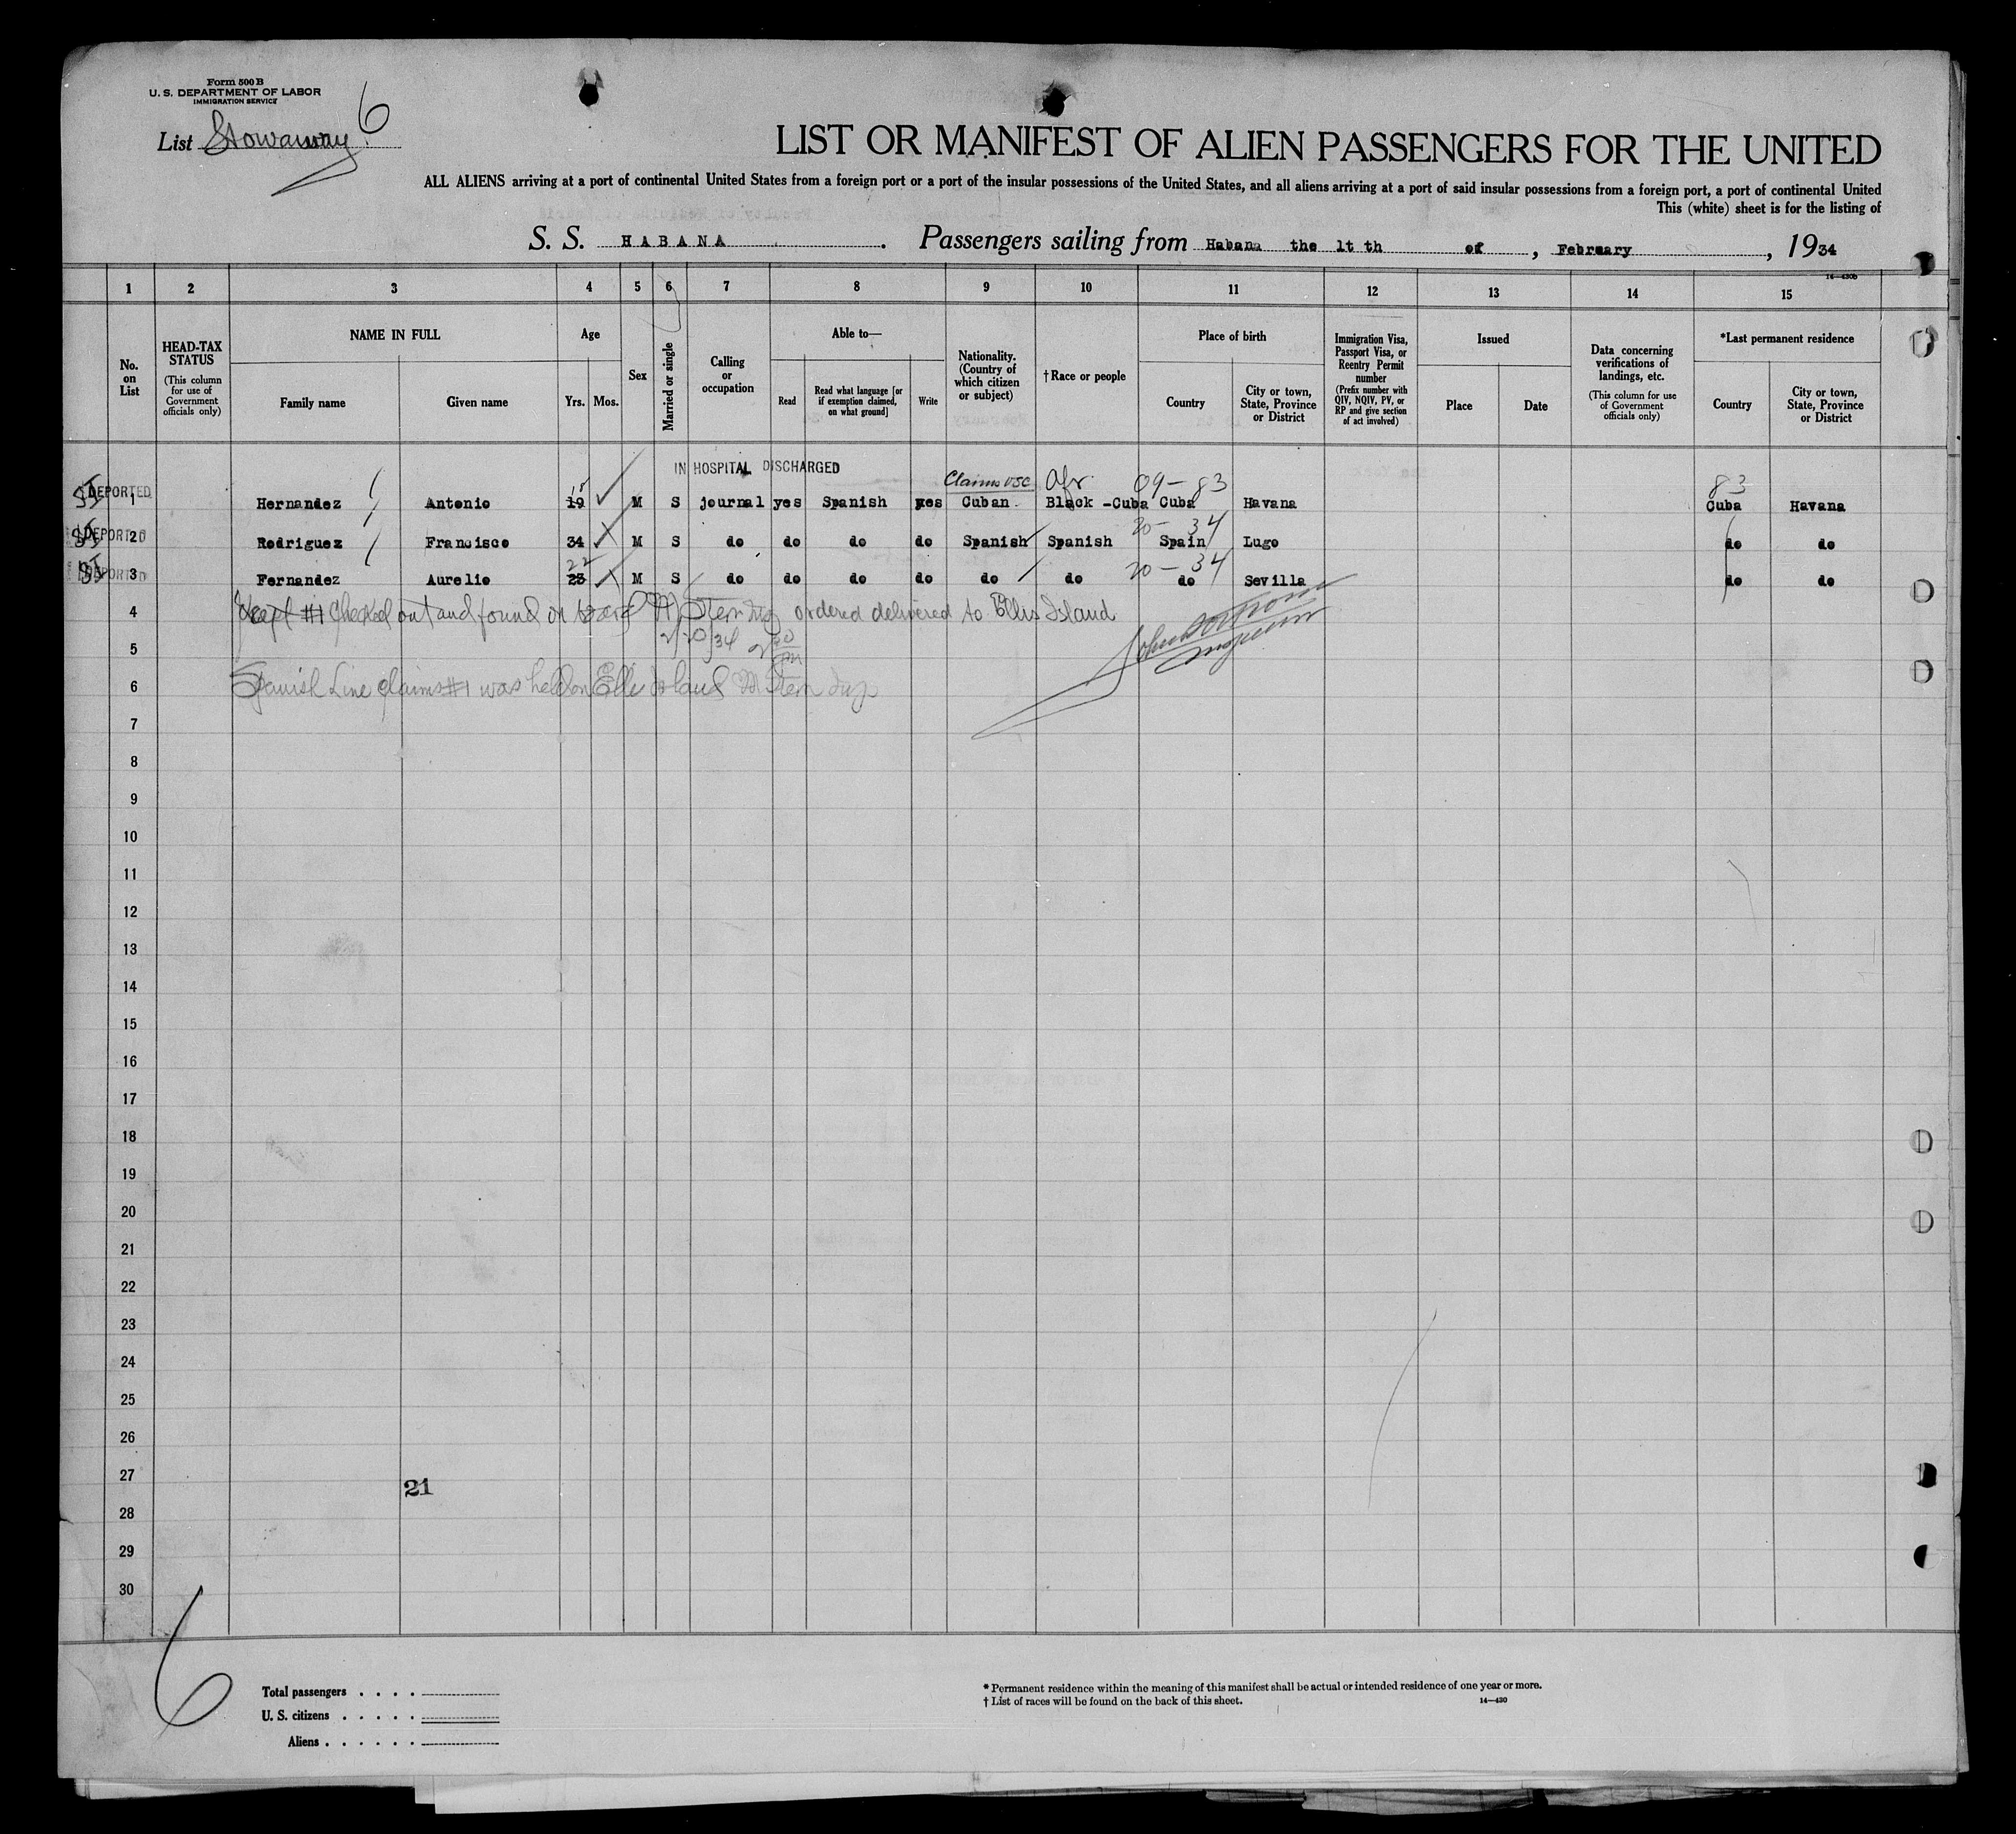 Form 500 B
U. S. DEPARTMENT OF LABOR
IMMIGRATION SERVICE
List Stowaway 6
LIST OR MANIFEST OF ALIEN PASSENGERS FOR THE UNITED
ALL ALIENS arriving at a port of continental United States from a foreign port or a port of the insular possessions of the United States, and all aliens arriving at a port of said insular possessions from a foreign port, a port of continental United
This (white) sheet is for the listing of
S. S. HABANA. Passengers sailing from Habana the 1t th of, February, 1934
14—430b
1 2 3 4 5 6 7 8 9 10 11 12 13 14 15
No. on List
HEAD-TAX STATUS
(This column for use of Government officials only)
NAME IN FULL
Family name Given name
Age
Yrs. Mos.
Sex
Married or single
Calling or occupation
Able to—
Read
Read what language [or if exemption claimed, on what ground]
Write
Nationality. (Country of which citizen or subject)
†Race or people
Place of birth
Country
City or town, State, Province or District
Immigration Visa, Passport Visa, or Reentry Permit number
(Prefix number with QIV, NQIV, PV, or RP and give section of act involved)
Issued
Place Date
Data concerning verifications of landings, etc.
(This column for use of Government officials only)
*Last permanent residence
Country
City or town, State, Province or District
IN HOSPITAL DISCHARGED
Claims USC Afr 09-83 83
SI DEPORTED 1 Hernandez Antonio 19 18 M S journal yes Spanish yes Cuban Black -Cuba Cuba Havana Cuba Havana
20-34
SI DEPORTED 2 Rodriguez Francisco 34 M S do do do do Spanish Spanish Spain Lugo do do
22 20-34
SI DEPORTED 3 Fernandez Aurelio 23 M S do do do do do do do Sevilla do do
4 Kept #1 Checked out and found on board M Stern Insp ordered delivered to Ellis Island
2/20/34
5
Inspector
6 Spanish Line claims #1 was held on Ellis Island M Stern Insp
7
8
9
10
11
12
13
14
15
16
17
18
19
20
21
22
23
24
25
26
27
21
28
29
30
6
Total passengers . . . .
U. S. citizens . . . . .
Aliens . . . . . .
* Permanent residence within the meaning of this manifest shall be actual or intended residence of one year or more.
† List of races will be found on the back of this sheet.
14—430